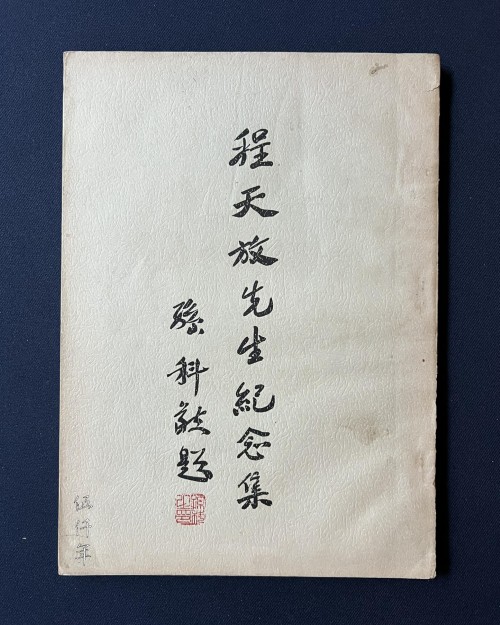 程天放先生紀念集
孫科敬題